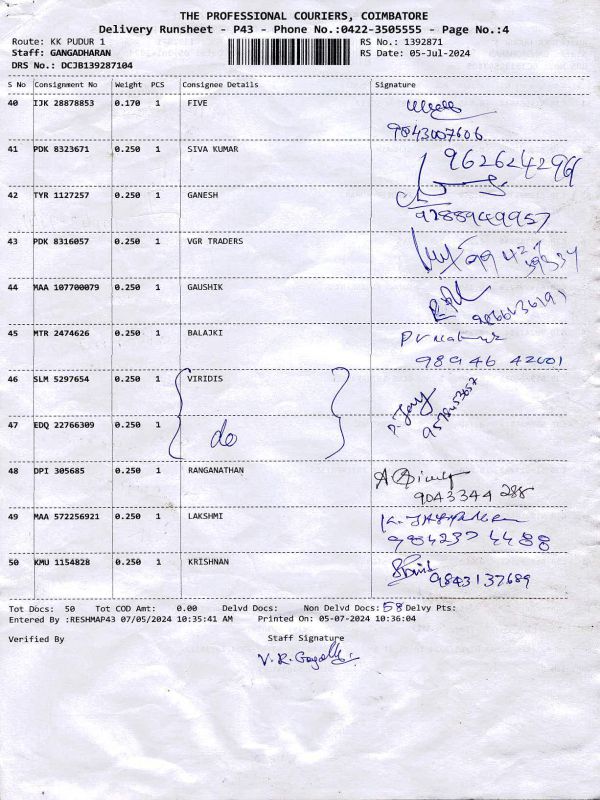 THE PROFESSIONAL COURIERS, COIMBATORE
Delivery Runsheet - P43 - Phone No.:0422-3505555 - Page No.:4
Route: KK PUDUR 1 RS No.: 1392871
Staff: GANGADHARAN RS Date: 05-Jul-2024
DRS No.: DCJB139287104
S No Consignment No Weight PCS Consignee Details Signature
40 IJK 28878853 0.170 1 FIVE
9843007606
41 PDK 8323671 0.250 1 SIVA KUMAR 962624296
42 TYR 1127257 0.250 1 GANESH
9788949957
43 PDK 8316057 0.250 1 VGR TRADERS
44 MAA 107700079 0.250 1 GAUSHIK
45 MTR 2474626 0.250 1 BALAJKI
98946 42001
46 SLM 5297654 0.250 1 VIRIDIS
47 EDQ 22766309 0.250 1 do
48 DPI 305685 0.250 1 RANGANATHAN
9043344 288
49 MAA 572256921 0.250 1 LAKSHMI
984237 4488
50 KMU 1154828 0.250 1 KRISHNAN 9843137689
Tot Docs: 50 Tot COD Amt: 0.00 Delvd Docs: Non Delvd Docs: 58 Delvy Pts:
Entered By :RESHMAP43 07/05/2024 10:35:41 AM Printed On: 05-07-2024 10:36:04
Verified By Staff Signature